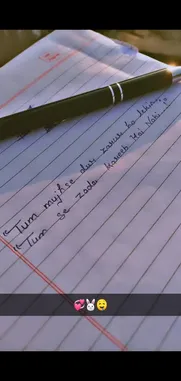 "Tum mujhse dur zarur ho lekin,
"Tum se zada kareeb koi nahi..."
💞🐰😉